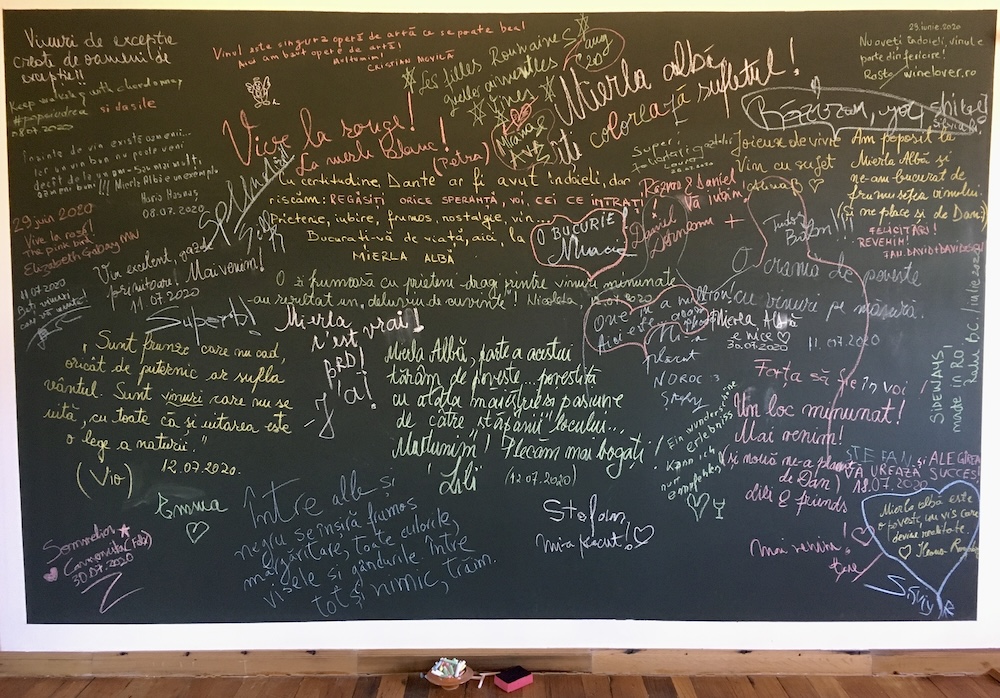 Vinuri de excepție
create de oameni de
excepție!!
Keep walking with chardonnay
și dasile
#prinpodrea
08.07.2020
Vinul este singura operă de artă ce se poate bea!
Au am băut opere de artă!
Mulțumim!
CRISTIAN MOVILĂ
Les filles Roumaines
quelles merveilles
Yves
aug
'20
Mierla albă
îți colorează sufletul!
29.iunie.2020
Nu aveți îndoieli, vinul e
parte din fericire!
winelover.ro
Răzvan, you shine!
Silvia M
Vive la rouge!
La merle Blanc!
(Petra)
Înainte de vin există oameni...
Iar un vin bun nu poate veni
decât de la un om - sau mai mulți,
oameni buni!!! Mierla Albă e un exemplu
Horia Hasnaș
08.07.2020
splendid
Super!
Joieuse de vivre
Vin cu suflet
Am poposit la
Mierla Albă și
ne-am bucurat de
frumusețea vinului
(și ne place și de Dan)
FELICITĂRI!
REVENIM!
Cu certitudine, Dante ar fi avut îndoieli, dar
riscăm: REGĂSIȚI ORICE SPERANȚĂ, VOI, CEI CE INTRAȚI
Prietenie, iubire, frumos, nostalgie, vin...
Bucurați-vă de viață, aici, la
MIERLA ALBĂ
Răzvan & Daniel
Vă iubim
O BUCURIE
Tudor
29 jun 2020
Vive la rosé!
The pink bird
Elizabeth Gabay MW
Vin excelent, gazde
primitoare!
Mai venim!
11.07.2020
11.07.2020
O zi frumoasă cu prieteni dragi printre vinuri minunate
au rezultat un „delusviu de cuvinte"! Nicoleta 12.07.2020
O cramă de poveste
cu vinuri pe măsură.
11.07.2020
Superb!
Mierla
c'est vrai!
Mierla Albă
e nice
30.07.2020
mi-a
plăcut
NOROC :3
„Sunt frunze care nu cad,
oricât de puternic ar sufla
vântul. Sunt vinuri care nu se
uită, cu toate că și uitarea este
o lege a naturii."
(Vio)
12.07.2020.
Mierla Albă, parte a acestui
tărâm de poveste... povestită
cu atâta măiestrie și pasiune
de către „stăpânii" locului...
Mulțumim! Plecăm mai bogați!
Lili (12.07.2020)
Forța să fie în voi!
Un loc minunat!
Mai venim!
(și nouă ne-a plăcut
de Dan)
Lili & friends
SIDEWAYS!
made in RO!
Ein wunderschöne
erlebniss
Kann ich
nur
empfehlen
ȘTEFAN ȘI ALEGREA
VĂ UREAZĂ SUCCES!
18.07.2020
Emma
Între alb și
negru se înșiră frumos
mărgăritare, toate culorile,
visele și gândurile. Între
tot și nimic, trăim.
Ștefan,
mi-a plăcut!
mai venim!
Mierla albă este
o poveste, un vis care
devine realitate
Sommelier
30.07.2020
Silviy R